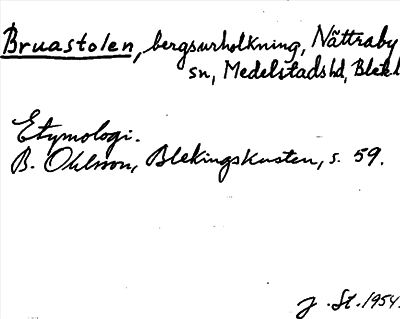 Bruastolen, bergsurholkning, Nättraby
sn, Medelstads hd, Blek
Etymologi.
B. Ohlsson, Blekingskusten, s. 59.
J. St. 1954.